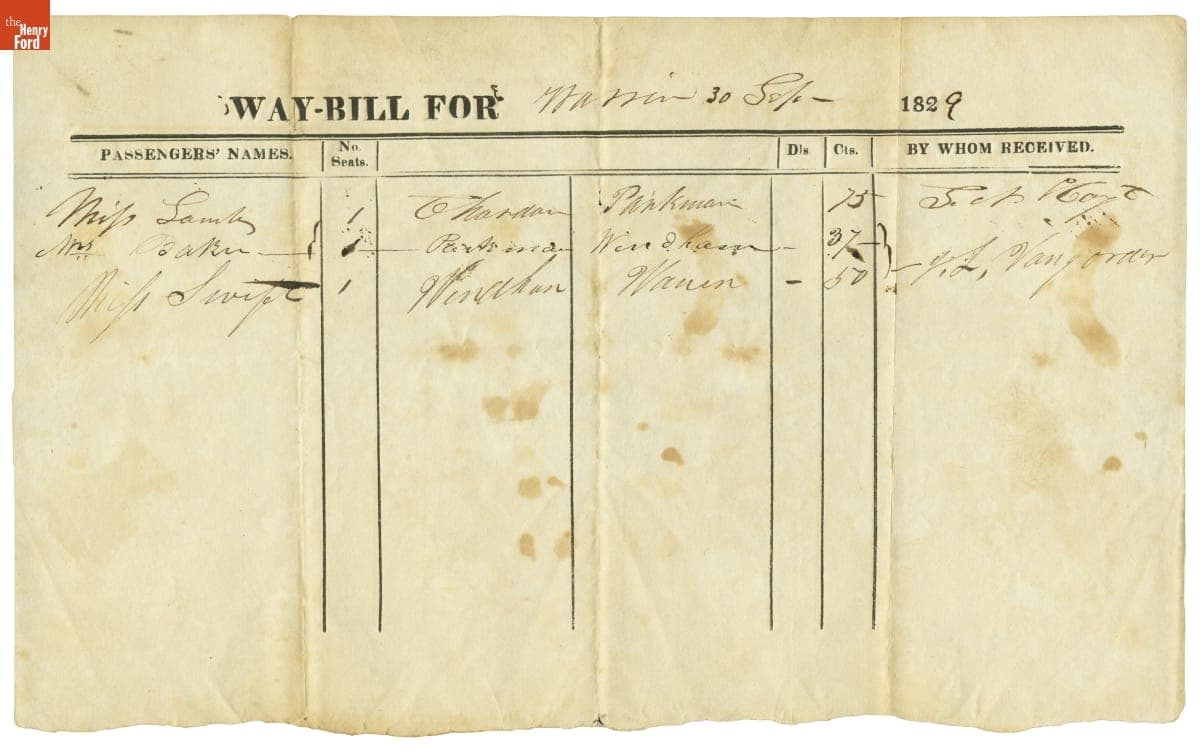 the Henry Ford
WAY-BILL FOR Warrin 30 Sep 1829
PASSENGERS' NAMES. No. Seats. Dls Cts. BY WHOM RECEIVED.
Miss Lamb 1 Chardon Parkman 75
Mrs Baker 1 Parkman Windham - 37
Miss Swift 1 Windham Warren - 50 Vangorder